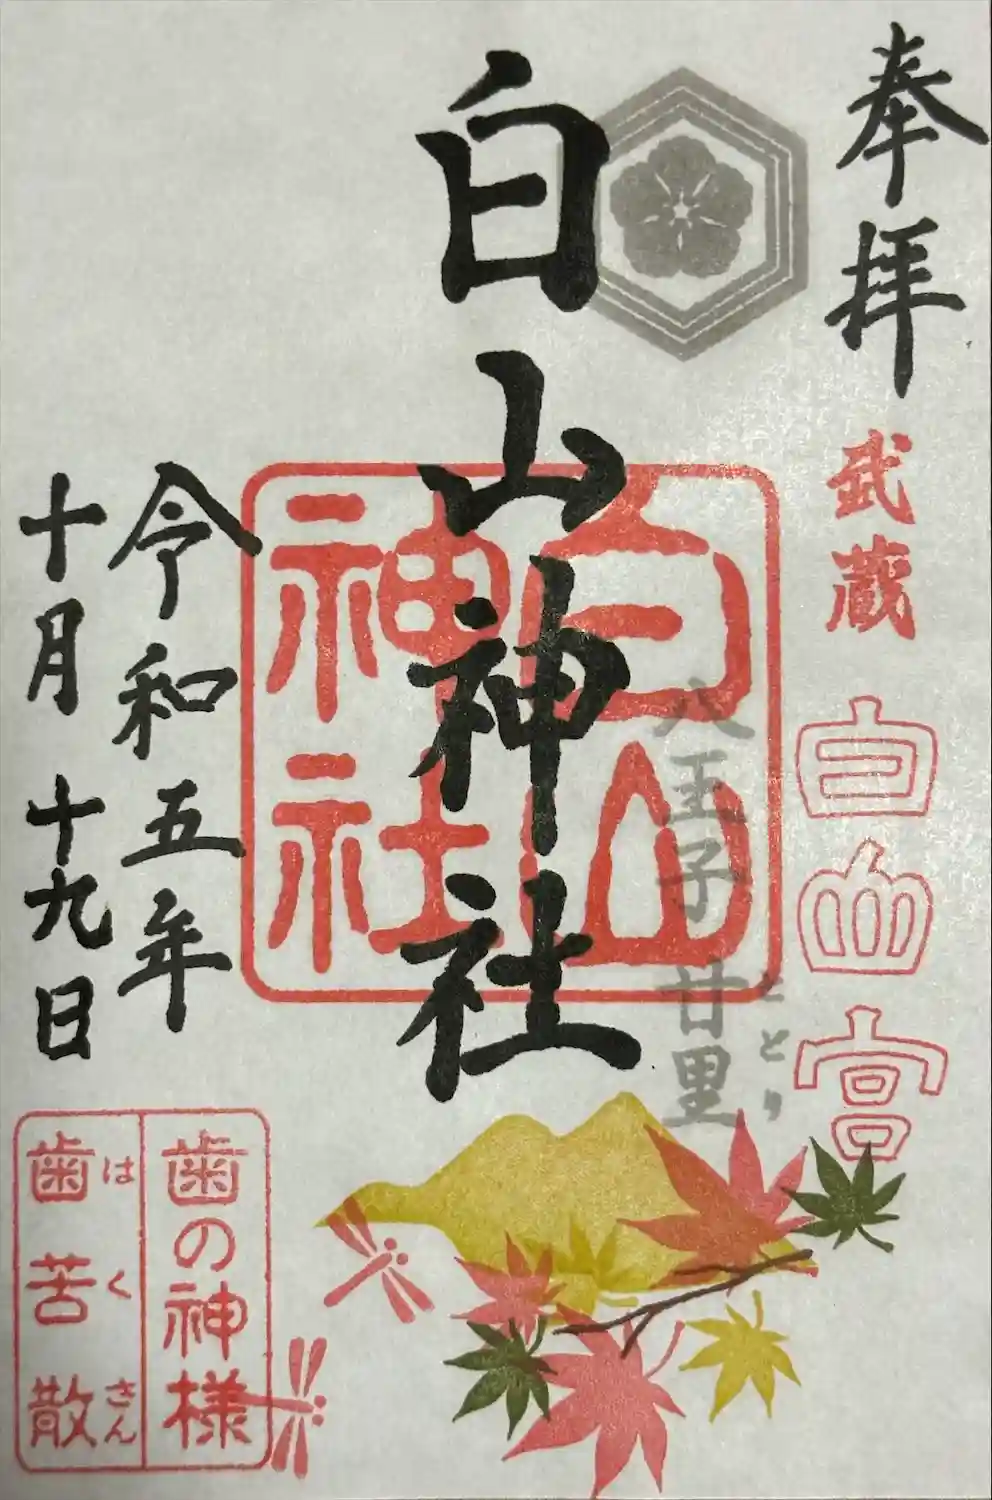 奉拝
武蔵
白山宮
八王子 廿里
とどり
白山神社
白山
神社
令和五年
十月十九日
歯の神様
はくさん
歯苦散